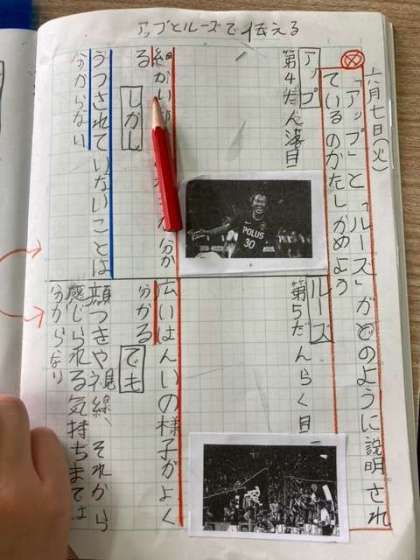 アップとルーズで伝える
六月七日(火)
め
「アップ」と「ルーズ」がどのように説明され
ているのかたしかめよう
アップ
第4だん落目
細かい
分か
る
しかし
うつされていないことは
分からない
ルーズ
第5だんらく目
広いはんいの様子がよく
分かる
でも
顔つきや視線、それから
感じられる気持ちまでは
分からない
POLUS
30